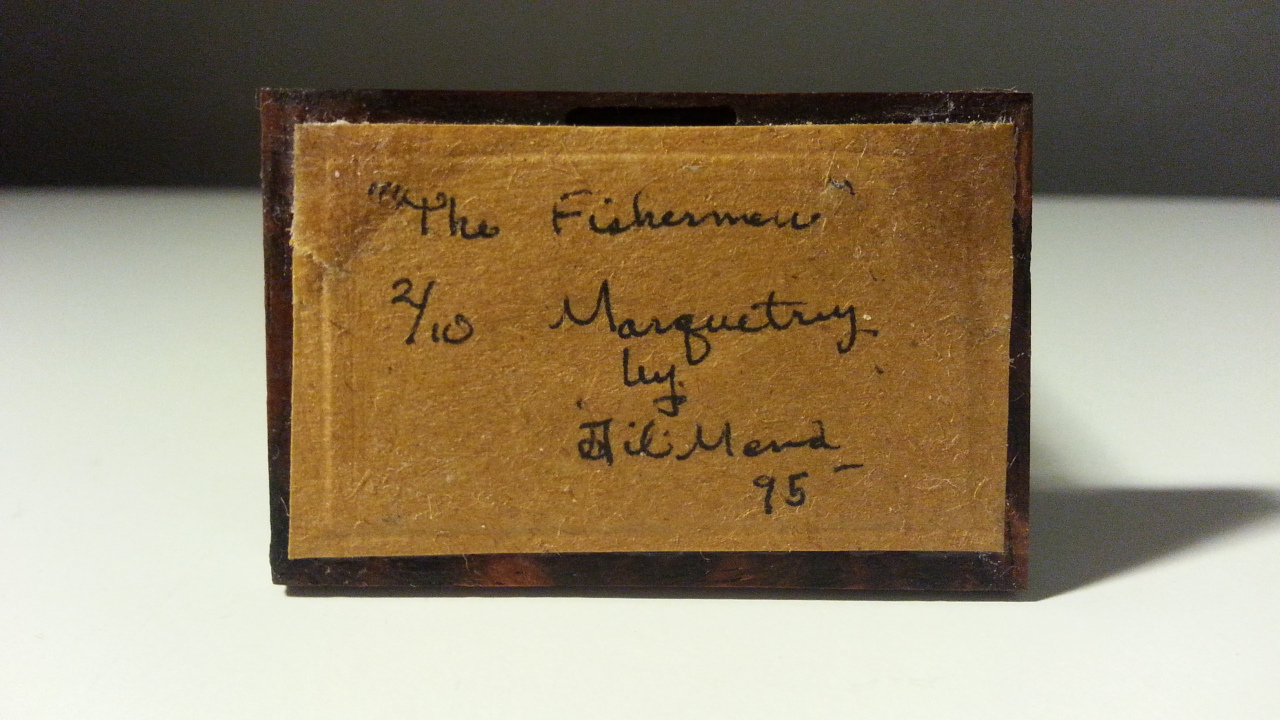 "The Fishermen"
2/10 Marquetry
by
Mend
95